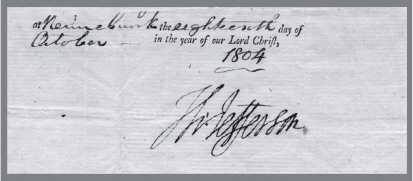 at Kennebunk the eighteenth day of
October in the year of our Lord Christ,
1804
Th: Jefferson